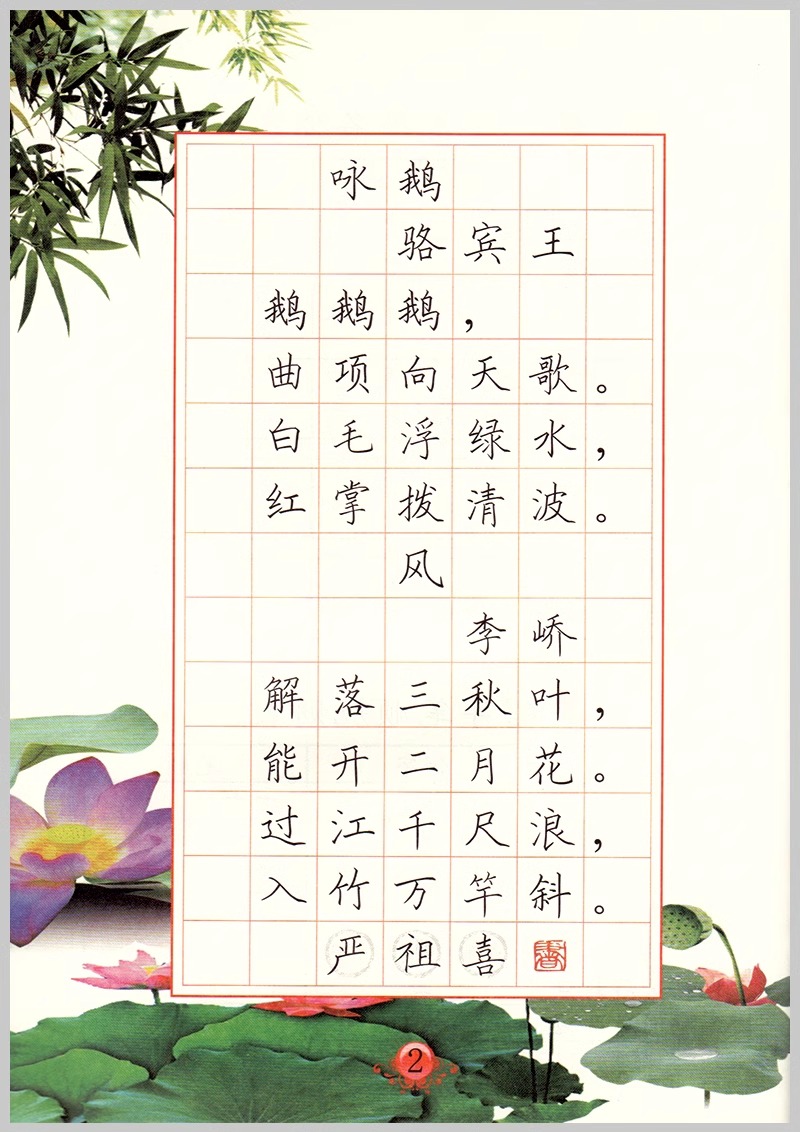 咏鹅
骆宾王
鹅鹅鹅，
曲项向天歌。
白毛浮绿水，
红掌拨清波。
风
李峤
解落三秋叶，
能开二月花。
过江千尺浪，
入竹万竿斜。
严祖喜书
2